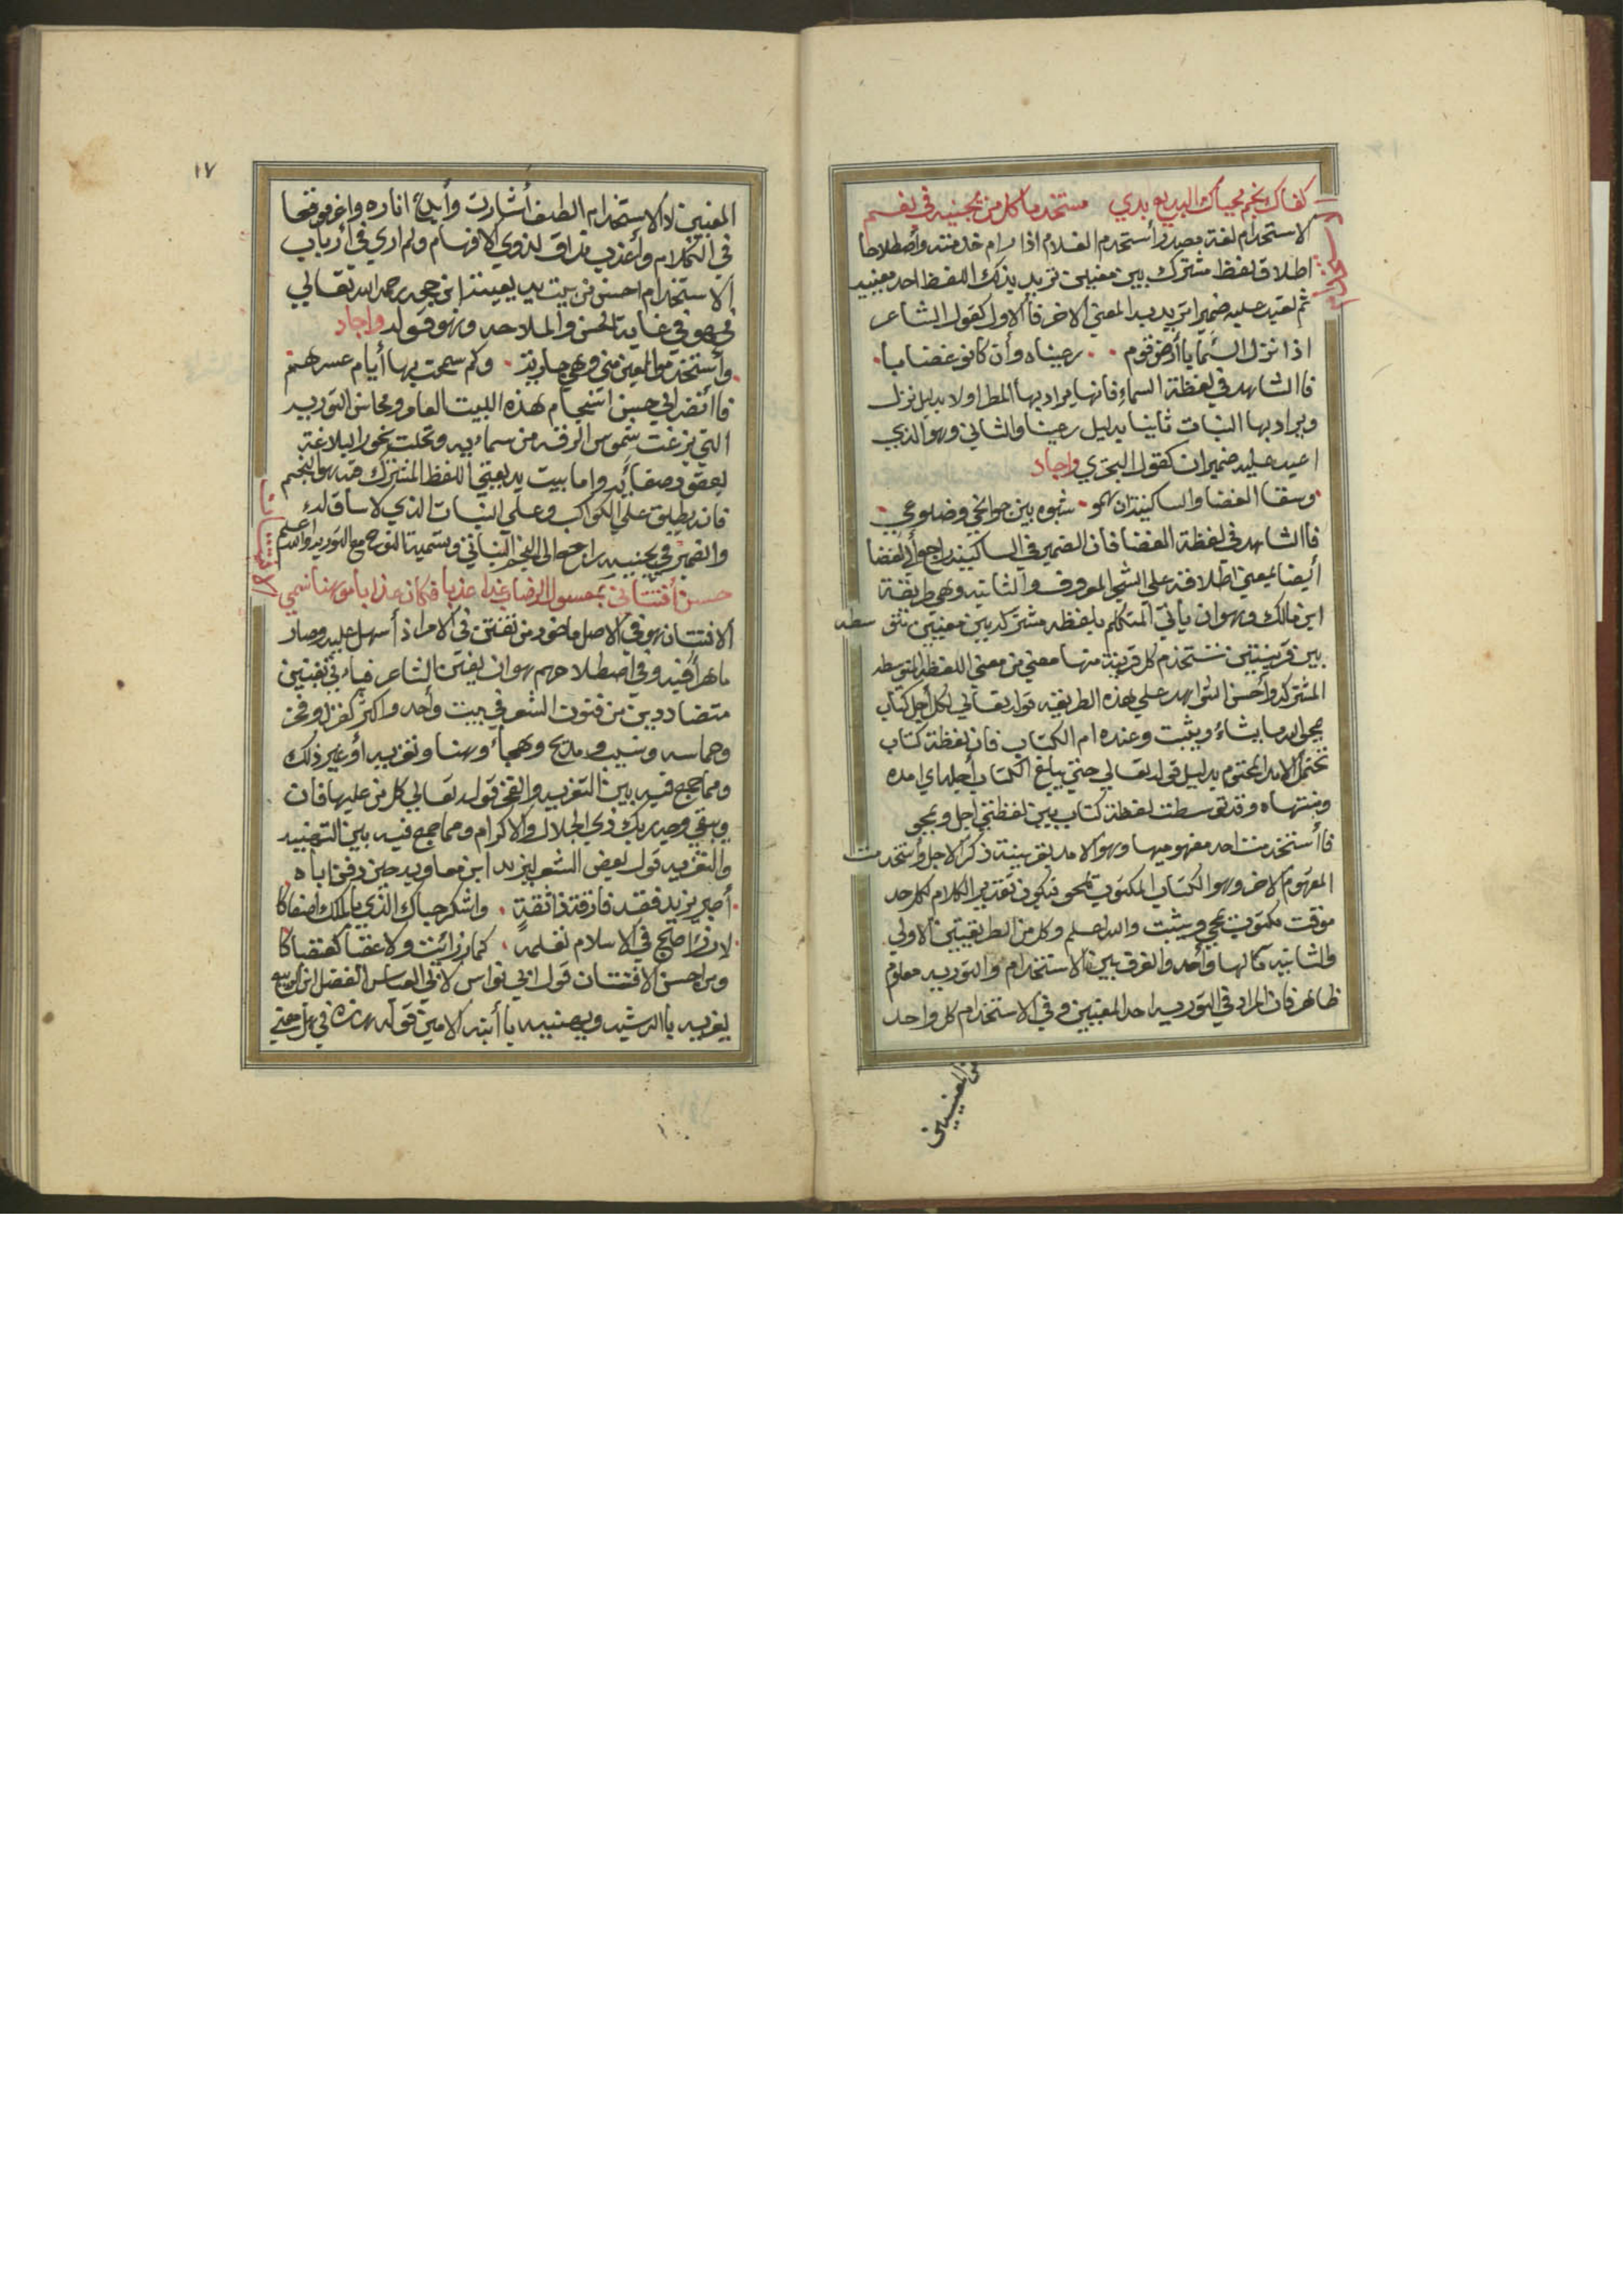 كفاك نجم محياك البديع بدي مستخدما كل من يجنيه في نغم
الاستخدام
الاستخدام لغة مصدر أستخدم الغلام اذا رام خدمته وأصطلاحا
اطلاق لفظ مشترك بين معنيين تريد بذلك اللفظ احد معنييه
ثم تعيد عليه ضميرا تريد به المعني الاخر فالاول كقول الشاعر
اذا نزل السما بأرض قوم رعيناه وأن كانو غضابا
فاالشاهد في لفظة السماء فانها يراد بها المطر اولا بدليل نزل
ويراد بها النبات ثانيا بدليل رعينا والثاني وهو الذي
اعيد عليه ضميران كقول البحتري واجاد
وسقا الغضا والساكنيه وان همو شبوه بين جوانحي وضلوعي
فاالشاهد في لفظة الغضا فان الضمير في الساكنيه راجع الي الغضا
أيضا بمعني اطلاقه علي الشجر المعروف والثانيه وهي طريقة
ابن مالك وهو ان ياتي المتكلم بلفظه مشتركه بين معنيين تتوسطه
بين قرينتين تستخدم كل قرينة منها معني من معني اللفظه المتوسطه
المشتركه وأحسن الشواهد علي هذه الطريقه قوله تعالي لكل أجل كتاب
يمحي الله ما يشاء ويثبت وعنده ام الكتاب فان لفظة كتاب
تحتمل الامد المحتوم بدليل قوله تعالي حتي يبلغ الكتاب أجله اي امده
ومنتهاه وقد توسطت لفظة كتاب بين لفظتي اجل ويمحي
فاأستخدمت احد مفهوميها وهو الامد بقرينة ذكر الاجل وأستخدمت
المفهوم الاخر وهو الكتاب المكتوب يمحو فيكون تقدير الكلام لكل حد
موقت مكتوب يمحي ويثبت والله اعلم وكل من الطريقيتين الاولي
والثانيه مالها واحد والفرق بين الاستخدام والتوريه معلوم
ظاهر فان المراد في التوريه احد المعنيين وفي الاستخدام كل واحد
من المعنيين
١٧
المعنيين لاكالاستخدام الطف أشارت وأبدع اناره واغر موقعا
في الكلام وأعذب مذاق لذوي الافهام ولم اري في أرباب
الاستخدام احسن من بيت بديعية ابن حجه رحمه الله تعالي
فهو في غاية الحسن والملاحه وهو قوله واجاد
وأستخدموا العين مني وهي جارية وكم سمحت بها أيام عسرهم
فاأنضر الي حسن انسجام هذه البيت العامر ومحاسن التوريه
التي بزغت شموس الرقه من سماء به وتحلت نحور البلاغة
بعقود صفائه واما بيت بديعيتي اللفظ المشترك فيه هو النجم
فانه يطلق علي الكواكب وعلي النبات الذي لا ساق له
والضمير في يجنيه راجع الي النجم النباتي وتسمية النوع مع التوريه والله اعلم
الافتتان
حسن أفتتاني بمعسول الرضاب غدا عذبا فكان عذابا موهنا نسمي
الافتتان هو في الاصل ماخود من تفتتن في الامر اذ أسهل عليه وصار
ماهرا فيه وفي اصطلاحهم هو ان يفتن الشاعر فياتي بفنين
متضاددين من فنون الشعر في بيت وأحد واكثر كغزل وفخر
وحماسه ونسيب ومديح وهجاء وهنا وتعزيه أو غير ذلك
ومما جمع فيه بين التعزيه والفخر قوله تعالي كل من عليها فان
ويبقي وجه ربك ذي الجلال والاكرام ومما جمع فيه بين التهنيه
والتعزيه قول بعض الشعر ليزيد ابن معاويه حين دفن اباه
أصبر يزيد فقد فارقت ذا ثقة واشكر حباك الذي بالملك اصفاكا
لارزء اصبح في الاسلام نعلمه كما رزئت ولا عقبا كعقباكا
ومن احسن الافتتان قول ابي نواس لابي العباس الفضل ابن الربيع
يعزيه باالرشيد ويهنيه باأبنه الامين قوله